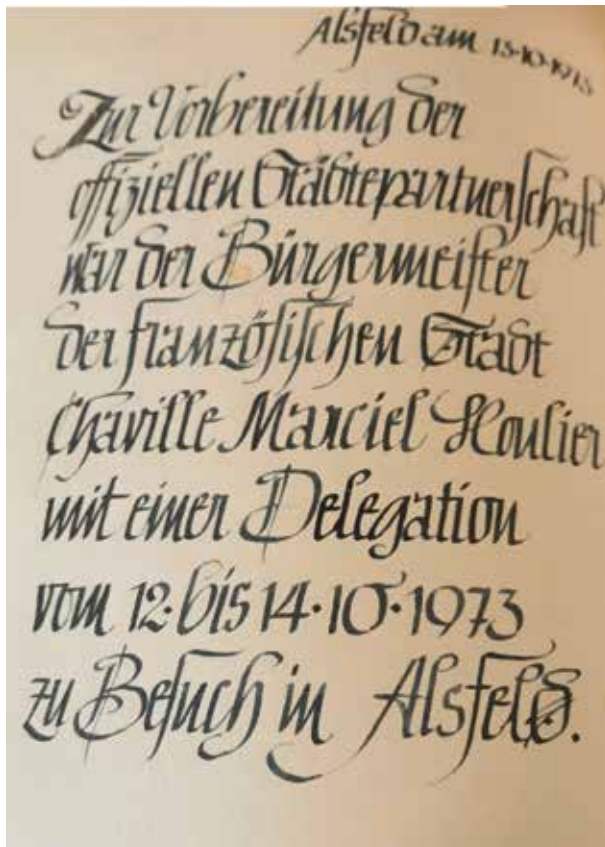 Alsfeld am 13·10·1973
Zur Vorbereitung der
offiziellen Städtepartnerschaft
war der Bürgermeister
der französischen Stadt
Chaville Marciel Houlier
mit einer Delegation
vom 12· bis 14·10·1973
zu Besuch in Alsfeld.